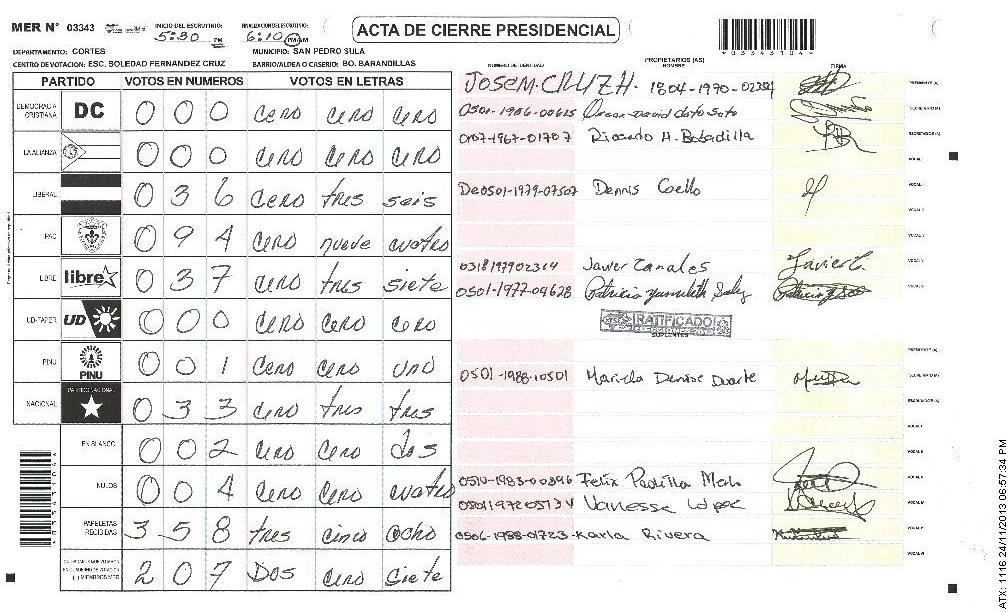 MER N° 03343 INICIO DEL ESCRUTINIO: 5:30 PM FINALIZACION ESCRUTINIO: 6:10 PM AM
ACTA DE CIERRE PRESIDENCIAL
DEPARTAMENTO: CORTES MUNICIPIO: SAN PEDRO SULA
CENTRO DE VOTACION: ESC. SOLEDAD FERNANDEZ CRUZ BARRIO/ALDEA O CASERIO: BO. BARANDILLAS
NUMERO DE IDENTIDAD PROPIETARIOS (AS) NOMBRE FIRMA
PARTIDO VOTOS EN NUMEROS VOTOS EN LETRAS
DEMOCRACIA CRISTIANA DC 0 0 0 cero cero cero
LA ALIANZA 0 0 0 cero cero cero
LIBERAL 0 3 6 cero tres seis
PAC 0 9 4 cero nueve cuatro
LIBRE libre 0 3 7 cero tres siete
UD-FAPER UD 0 0 0 cero cero cero
PINU PINU 0 0 1 cero cero uno
NACIONAL PARTIDO NACIONAL 0 3 3 cero tres tres
EN BLANCO 0 0 2 cero cero dos
NULOS 0 0 4 cero cero cuatro
PAPELETAS RECIBIDAS 3 5 8 tres cinco ocho
(-) MIEMBROS MER 2 0 7 DOS cero siete
JOSE M. CRUZ H. 1804-1990-02354 PRESIDENTE (A)
0501-1986-00615 Oscar David Soto SECRETARIO (A)
0107-1967-01707 Ricardo H. Bobadilla ESCRUTADOR (A)
VOCAL I
De0501-1979-07507 Dennis Coello
0318197902314 Javier Canales Javier C.
0501-1977-09628 Patricia Yamileth
RATIFICADO
SUPLENTES
PRESIDENTE (A)
0501-1988-10501 Mariela Denise Duarte SECRETARIO (A)
ESCRUTADOR (A)
VOCAL I
VOCAL II
0510-1983-00396 Felix Padilla
0501197205134 Vanessa Lopez
0506-1988-01723 Karla Rivera
VOCAL VI
03343104
ATX: 1116 24/11/2013 06:57:34 PM